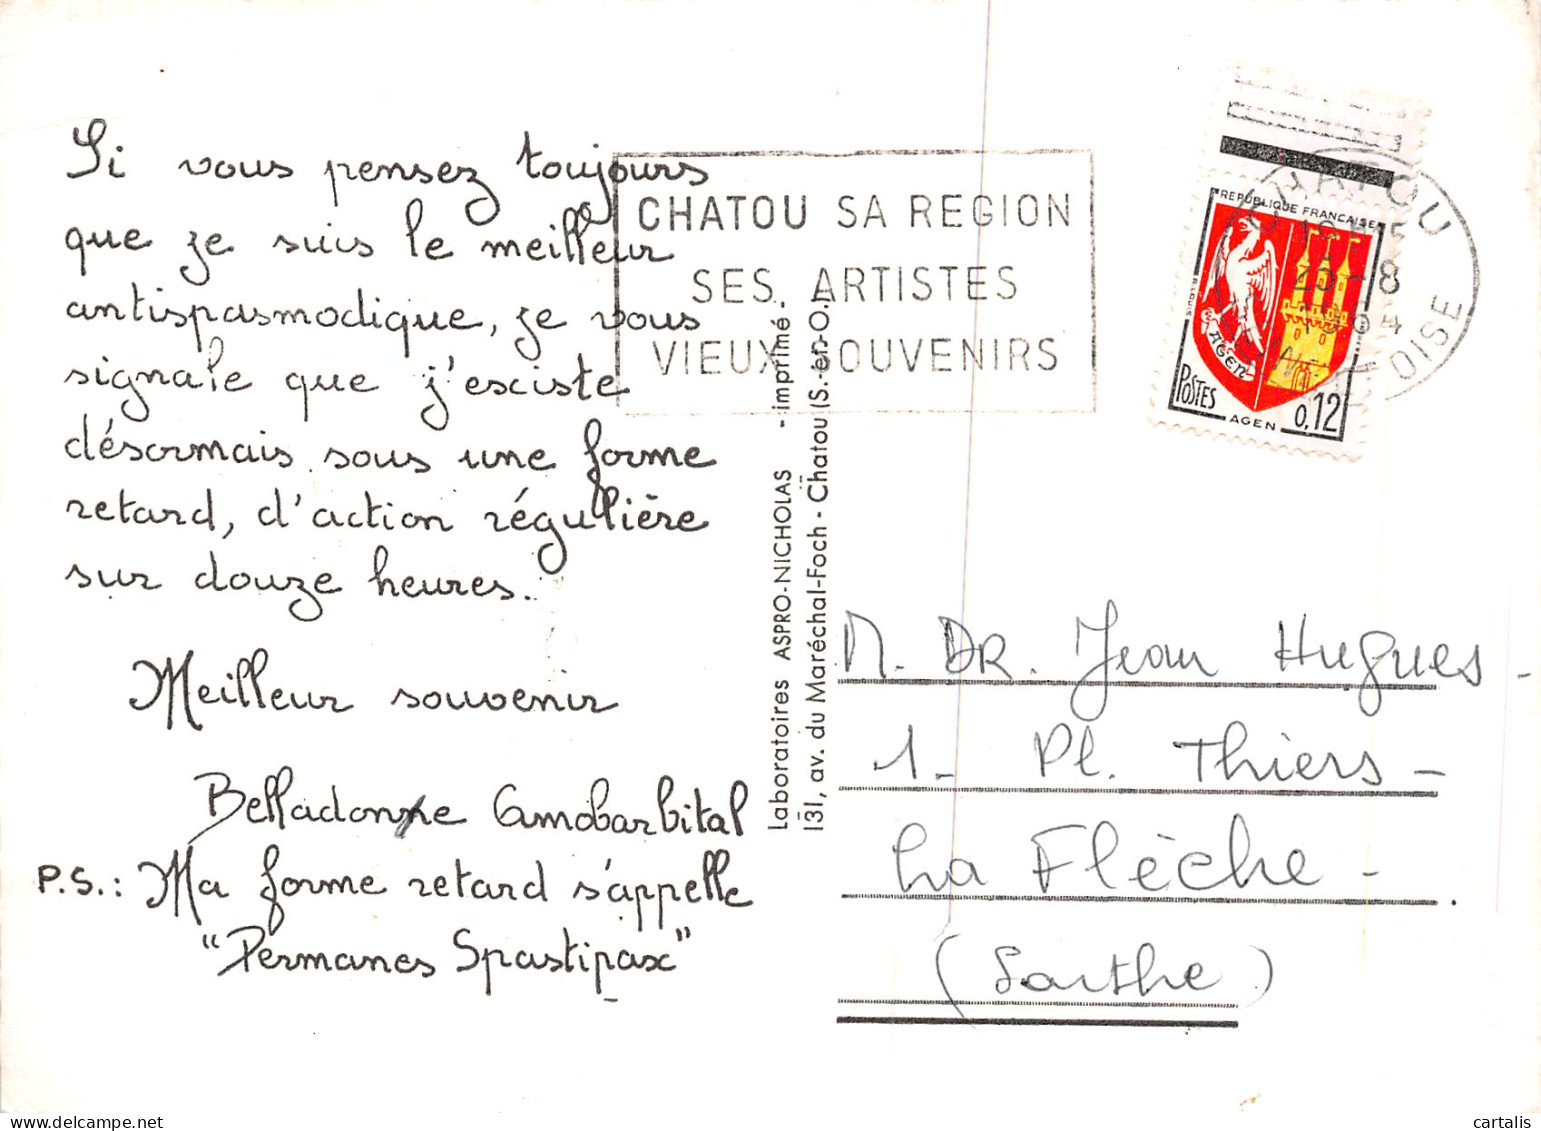 Si vous pensez toujours
que je suis le meilleur
antispasmodique, je vous
signale que j'existe
désormais sous une forme
retard, d'action régulière
sur douze heures.
Meilleur souvenir
Belladonne Amobarbital
P.S.: Ma forme retard s'appelle
"Permanes Spastipax"
CHATOU SA REGION
SES ARTISTES
VIEUX SOUVENIRS
Laboratoires ASPRO-NICHOLAS - imprimé
131, av. du Maréchal-Foch - Chatou (S.-et-O.)
CHATOU
25-8
OISE
REPUBLIQUE FRANCAISE
AGEN
POSTES
AGEN
0,12
M. DR. Jean Hugues -
1 - Pl. Thiers -
La Flèche -
(Sarthe)
cartalis